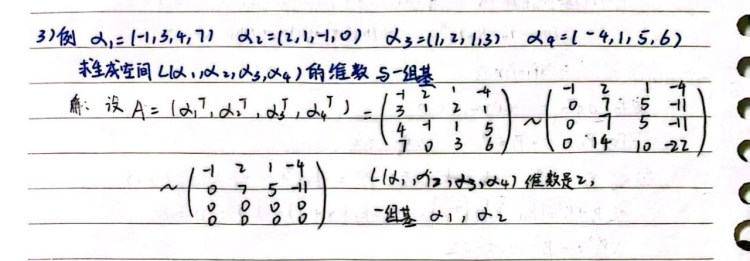 3)例 α₁=(-1,3,4,7) α₂=(2,1,-1,0) α₃=(1,2,1,3) α₄=(-4,1,5,6)
求生成空间L(α₁,α₂,α₃,α₄)的维数与一组基
解: 设 A=(α₁ᵀ,α₂ᵀ,α₃ᵀ,α₄ᵀ)=(-1 2 1 -4; 3 1 2 1; 4 -1 1 5; 7 0 3 6) ~ (-1 2 1 -4; 0 7 5 -11; 0 -7 5 -11; 0 14 10 -22)
~ (-1 2 1 -4; 0 7 5 -11; 0 0 0 0; 0 0 0 0) L(α₁,α₂,α₃,α₄)维数是2,
一组基 α₁,α₂